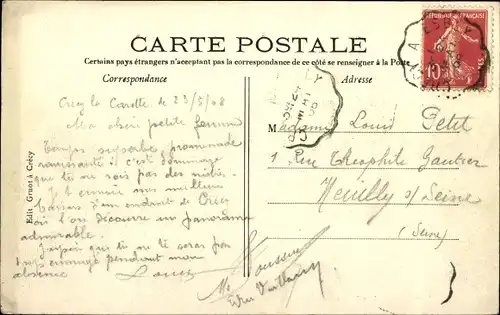 CARTE POSTALE
Certains pays étrangers n'acceptant pas la correspondance de ce côté se renseigner à la Poste
Correspondance
Adresse
Edit. Gruot à Crécy
Crécy le 23/5/08
Ma chère petite femme
Temps superbe, promenade
ravissante ; c'est dommage
que tu ne sois pas des nôtres.
Je t'envoie mes meilleurs
baisers d'un endroit de Crécy
où l'on découvre un panorama
admirable.
J'espère que tu ne te seras pas
ennuyée pendant mon
absence
Louis
Madame Louis Petit
1 Rue Théophile Gautier
Neuilly s/ Seine
(Seine)